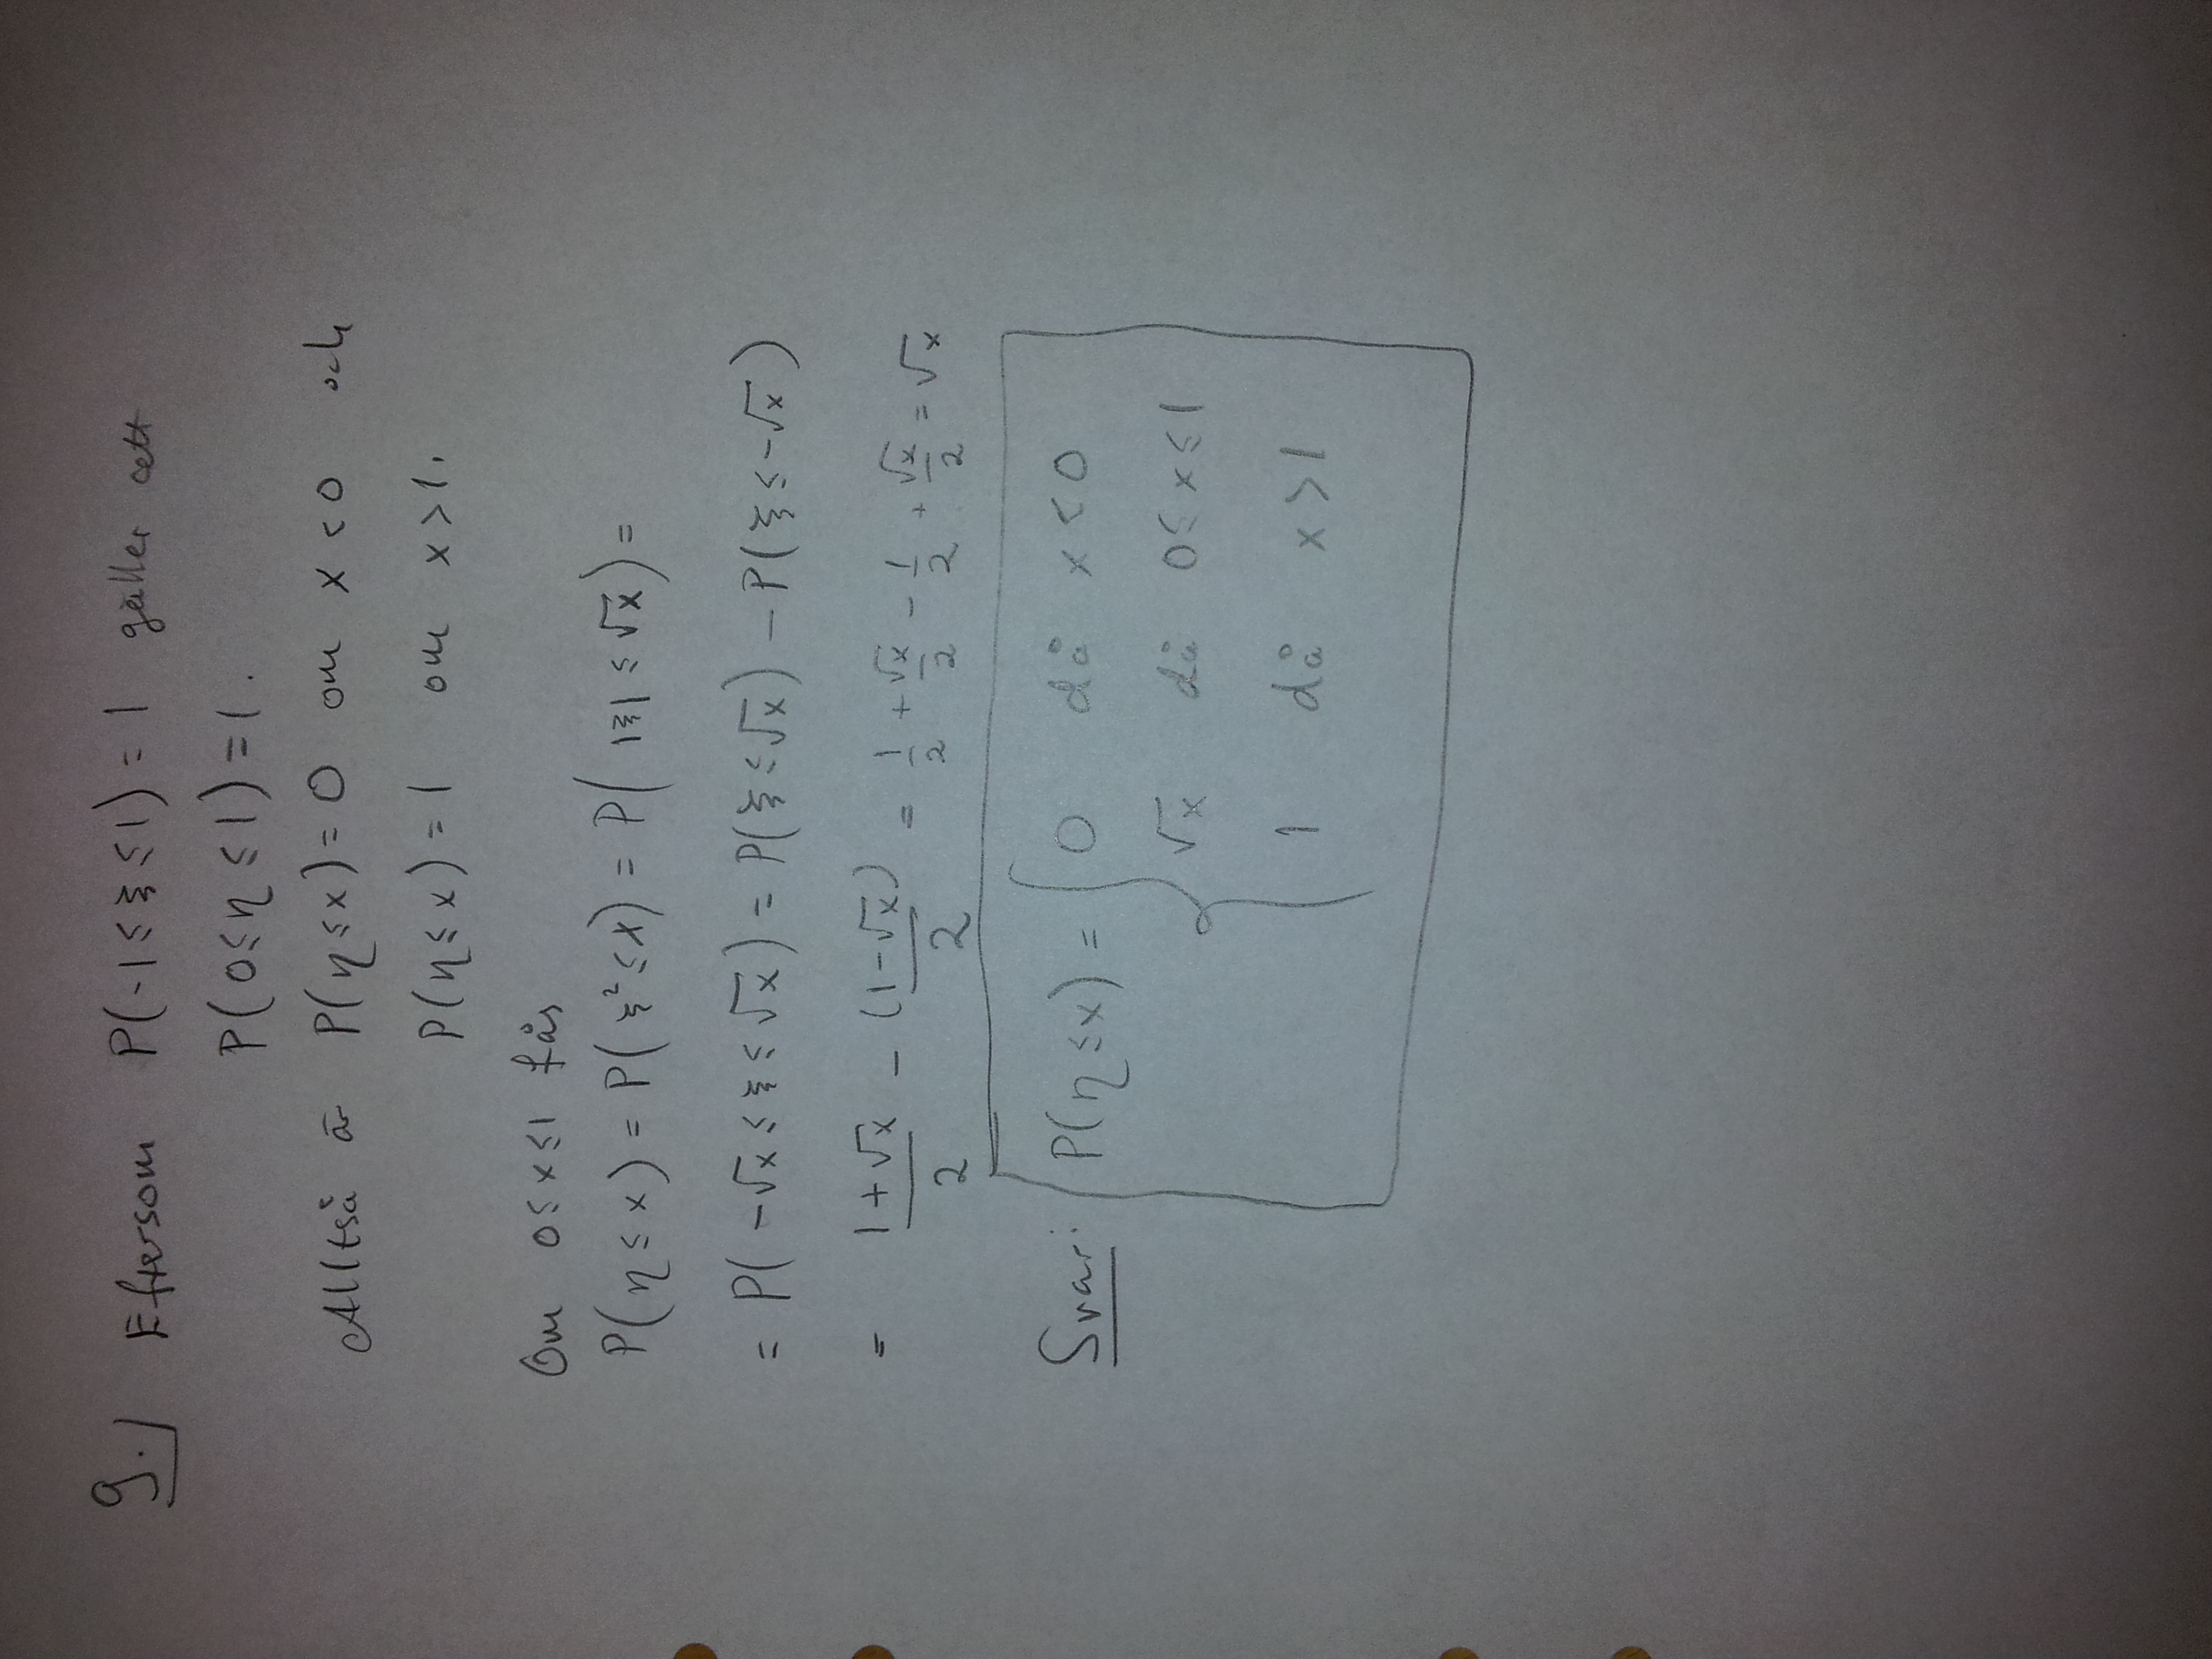 9.) Eftersom P(-1≤ξ≤1)=1 gäller att
P(0≤η≤1)=1.
Alltså är P(η≤x)=0 om x<0 och
P(η≤x)=1 om x>1.
Om 0≤x≤1 fås
P(η≤x)=P(ξ²≤x)=P(|ξ|≤√x)=
=P(-√x≤ξ≤√x)=P(ξ≤√x)-P(ξ≤-√x)
= (1+√x)/2 - (1-√x)/2 = 1/2 + √x/2 - 1/2 + √x/2 = √x
Svar: P(η≤x) = { 0 då x<0
√x då 0≤x≤1
1 då x>1